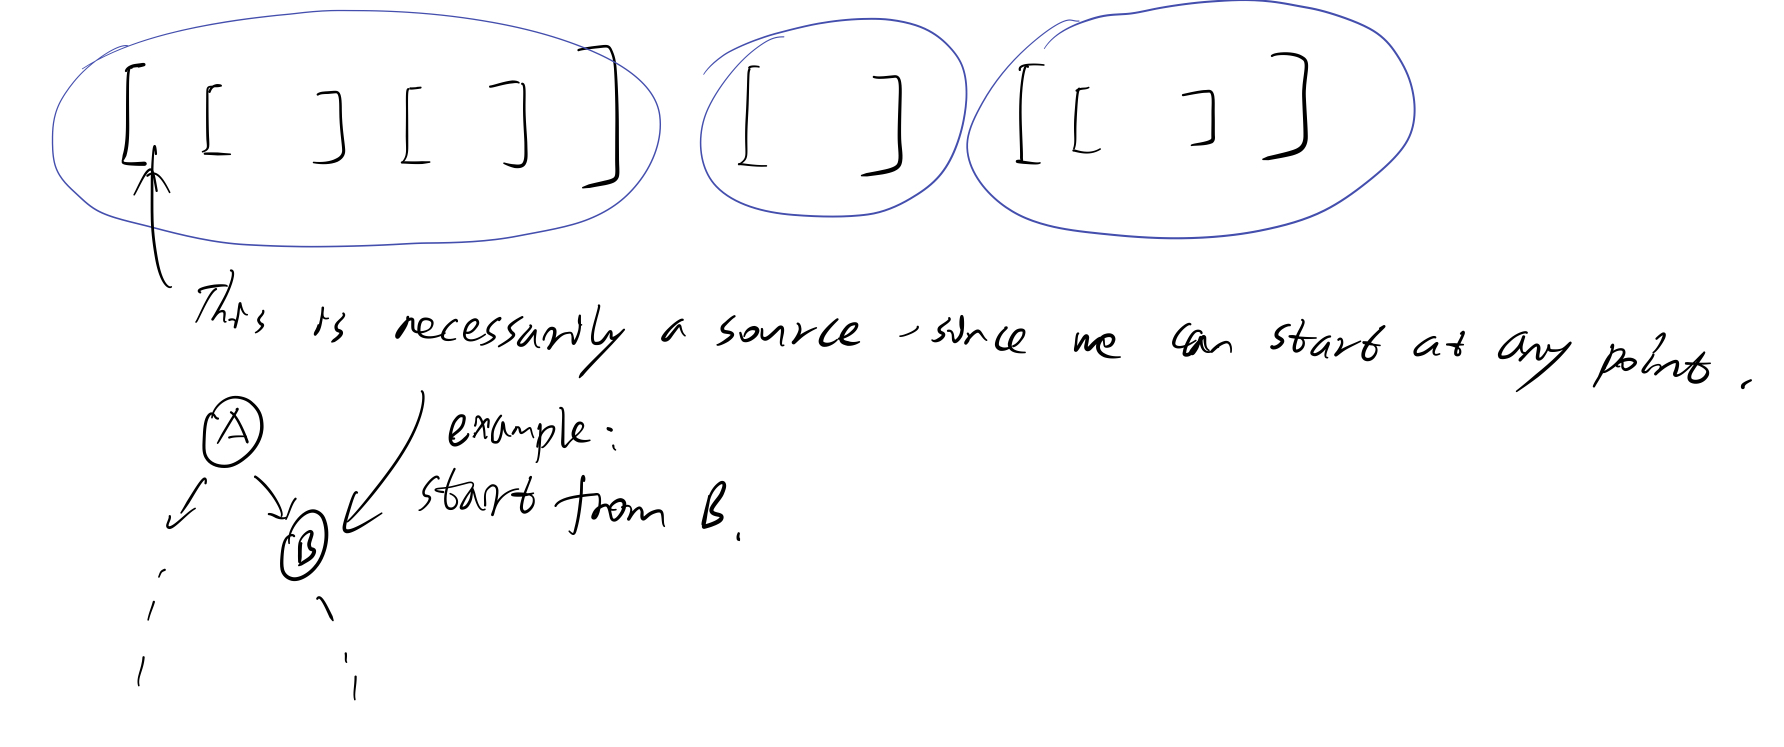 [ [ ] [ ] ] [ ] [ [ ] ]
This is necessarily a source, since we can start at any point.
A
example:
start from B.
B